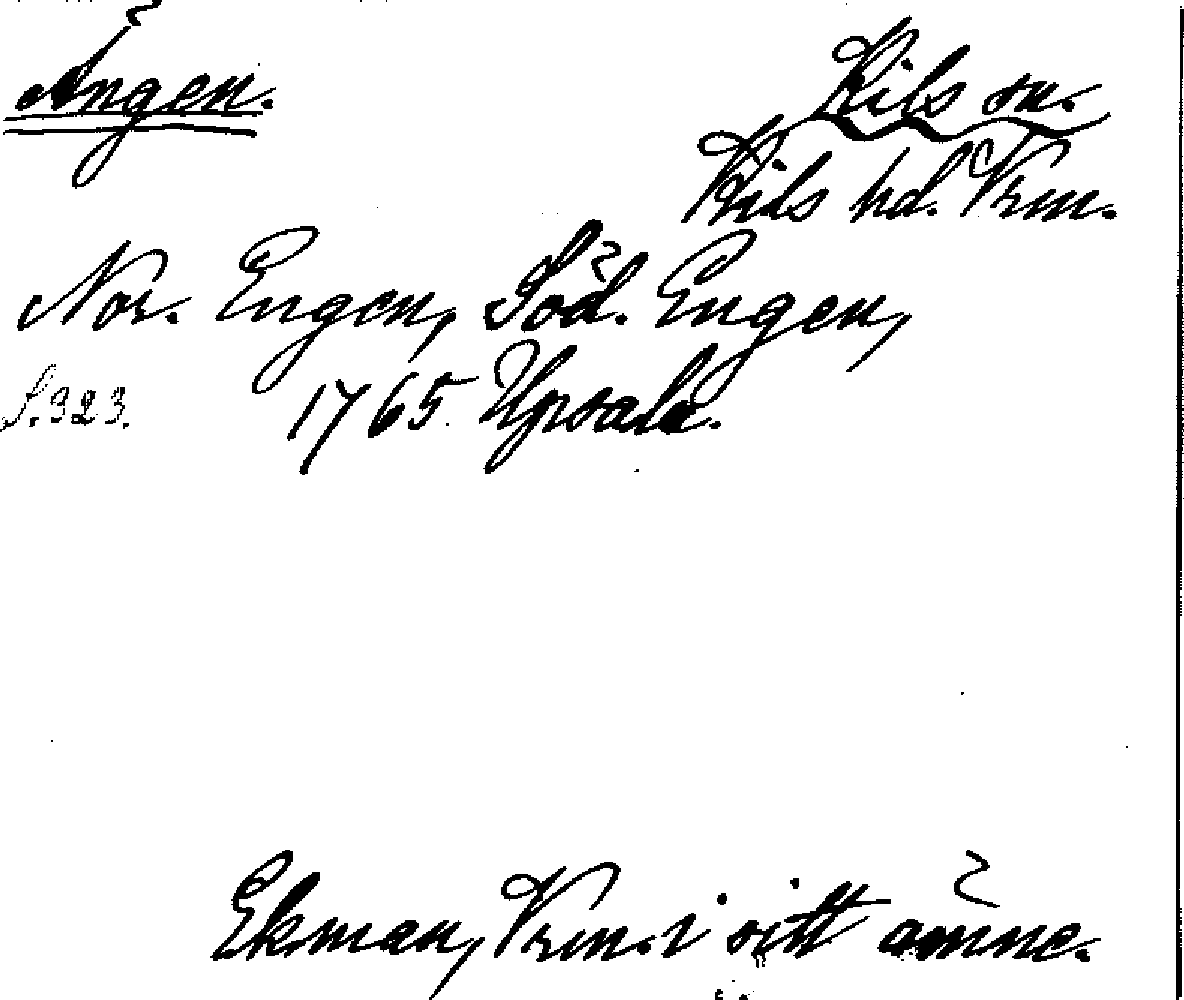 Ängen.
Kils sn.
Kils hd. Vrm.
Nor. Engen, Söd. Engen,
S. 323. 1765 Upsala.
Ekman, Vrm. i sitt ämne.